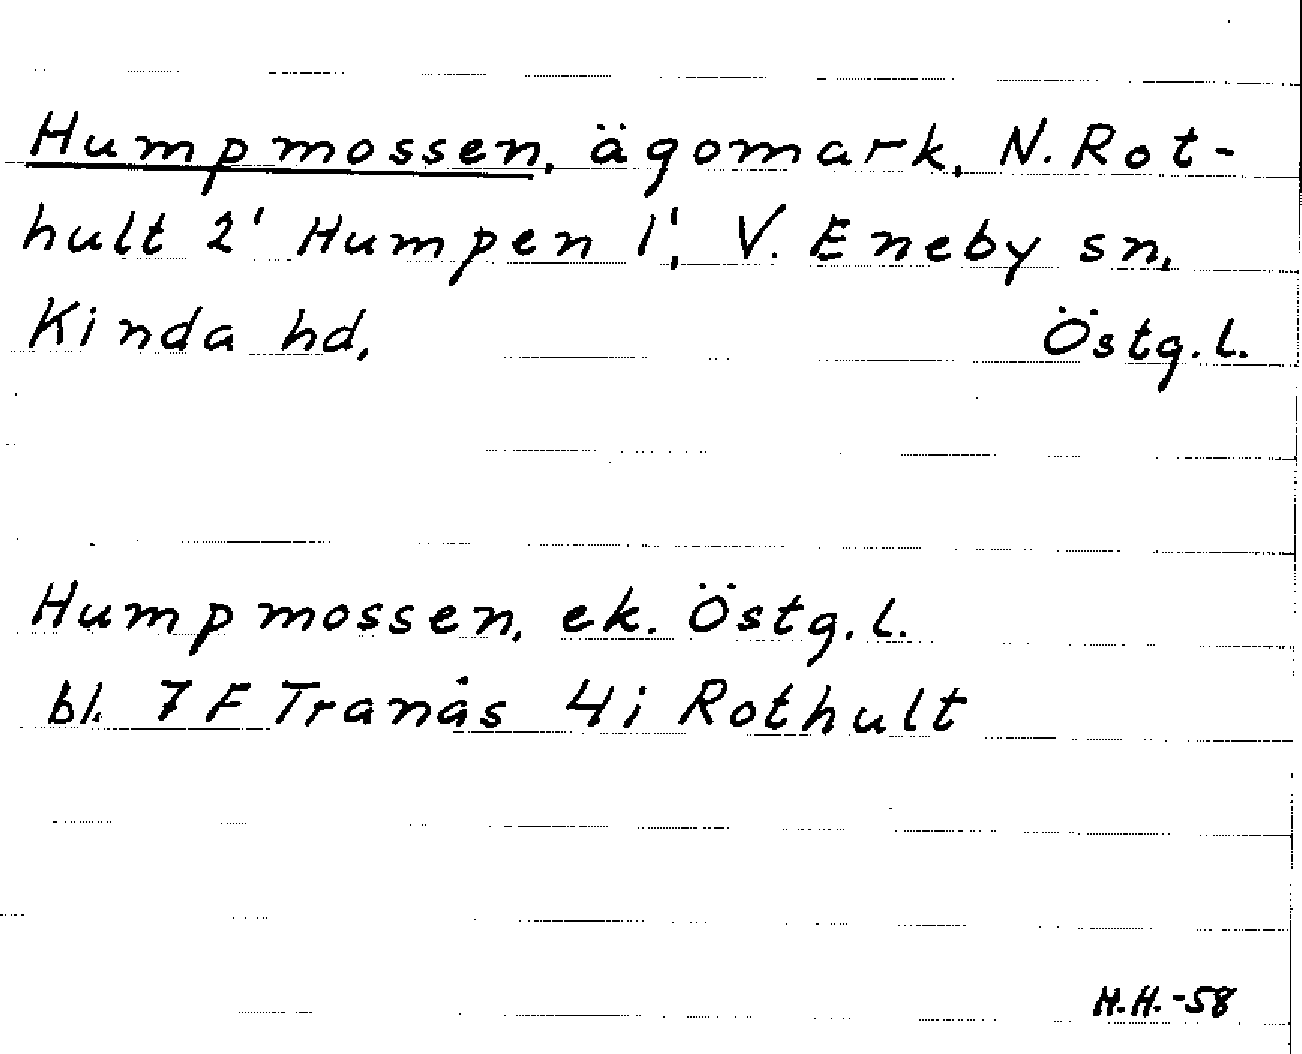 Humpmossen, ägomark, N. Rot-
hult 2' Humpen 1', V. Eneby sn,
Kinda hd, Östg. l.
Humpmossen, ek. Östg. l.
bl. 7 F Tranås 4 i Rothult
H.H. -58